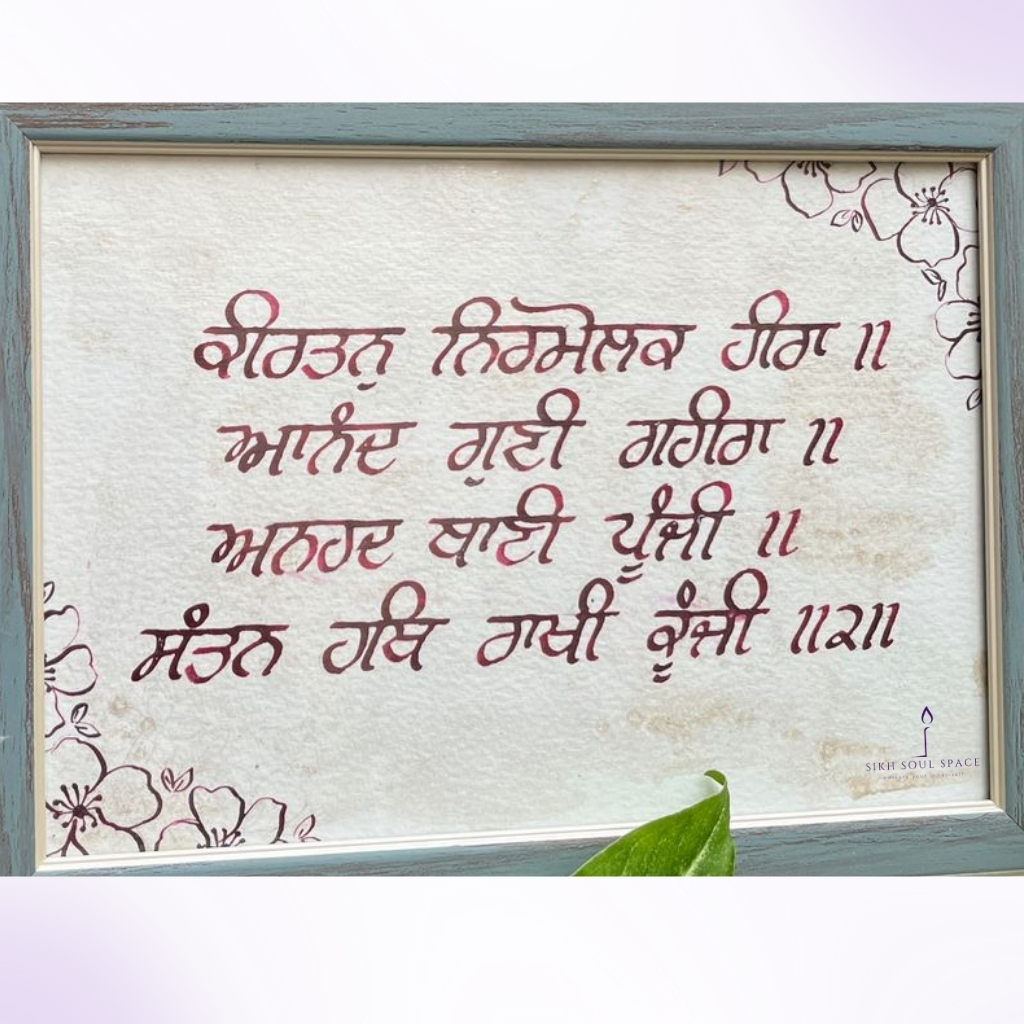 ਕੀਰਤਨੁ ਨਿਰਮੋਲਕ ਹੀਰਾ ॥
ਆਨੰਦ ਗੁਣੀ ਗਹੀਰਾ ॥
ਅਨਹਦ ਬਾਣੀ ਪੂੰਜੀ ॥
ਸੰਤਨ ਹਥਿ ਰਾਖੀ ਕੂੰਜੀ ॥੨॥
SIKH SOUL SPACE